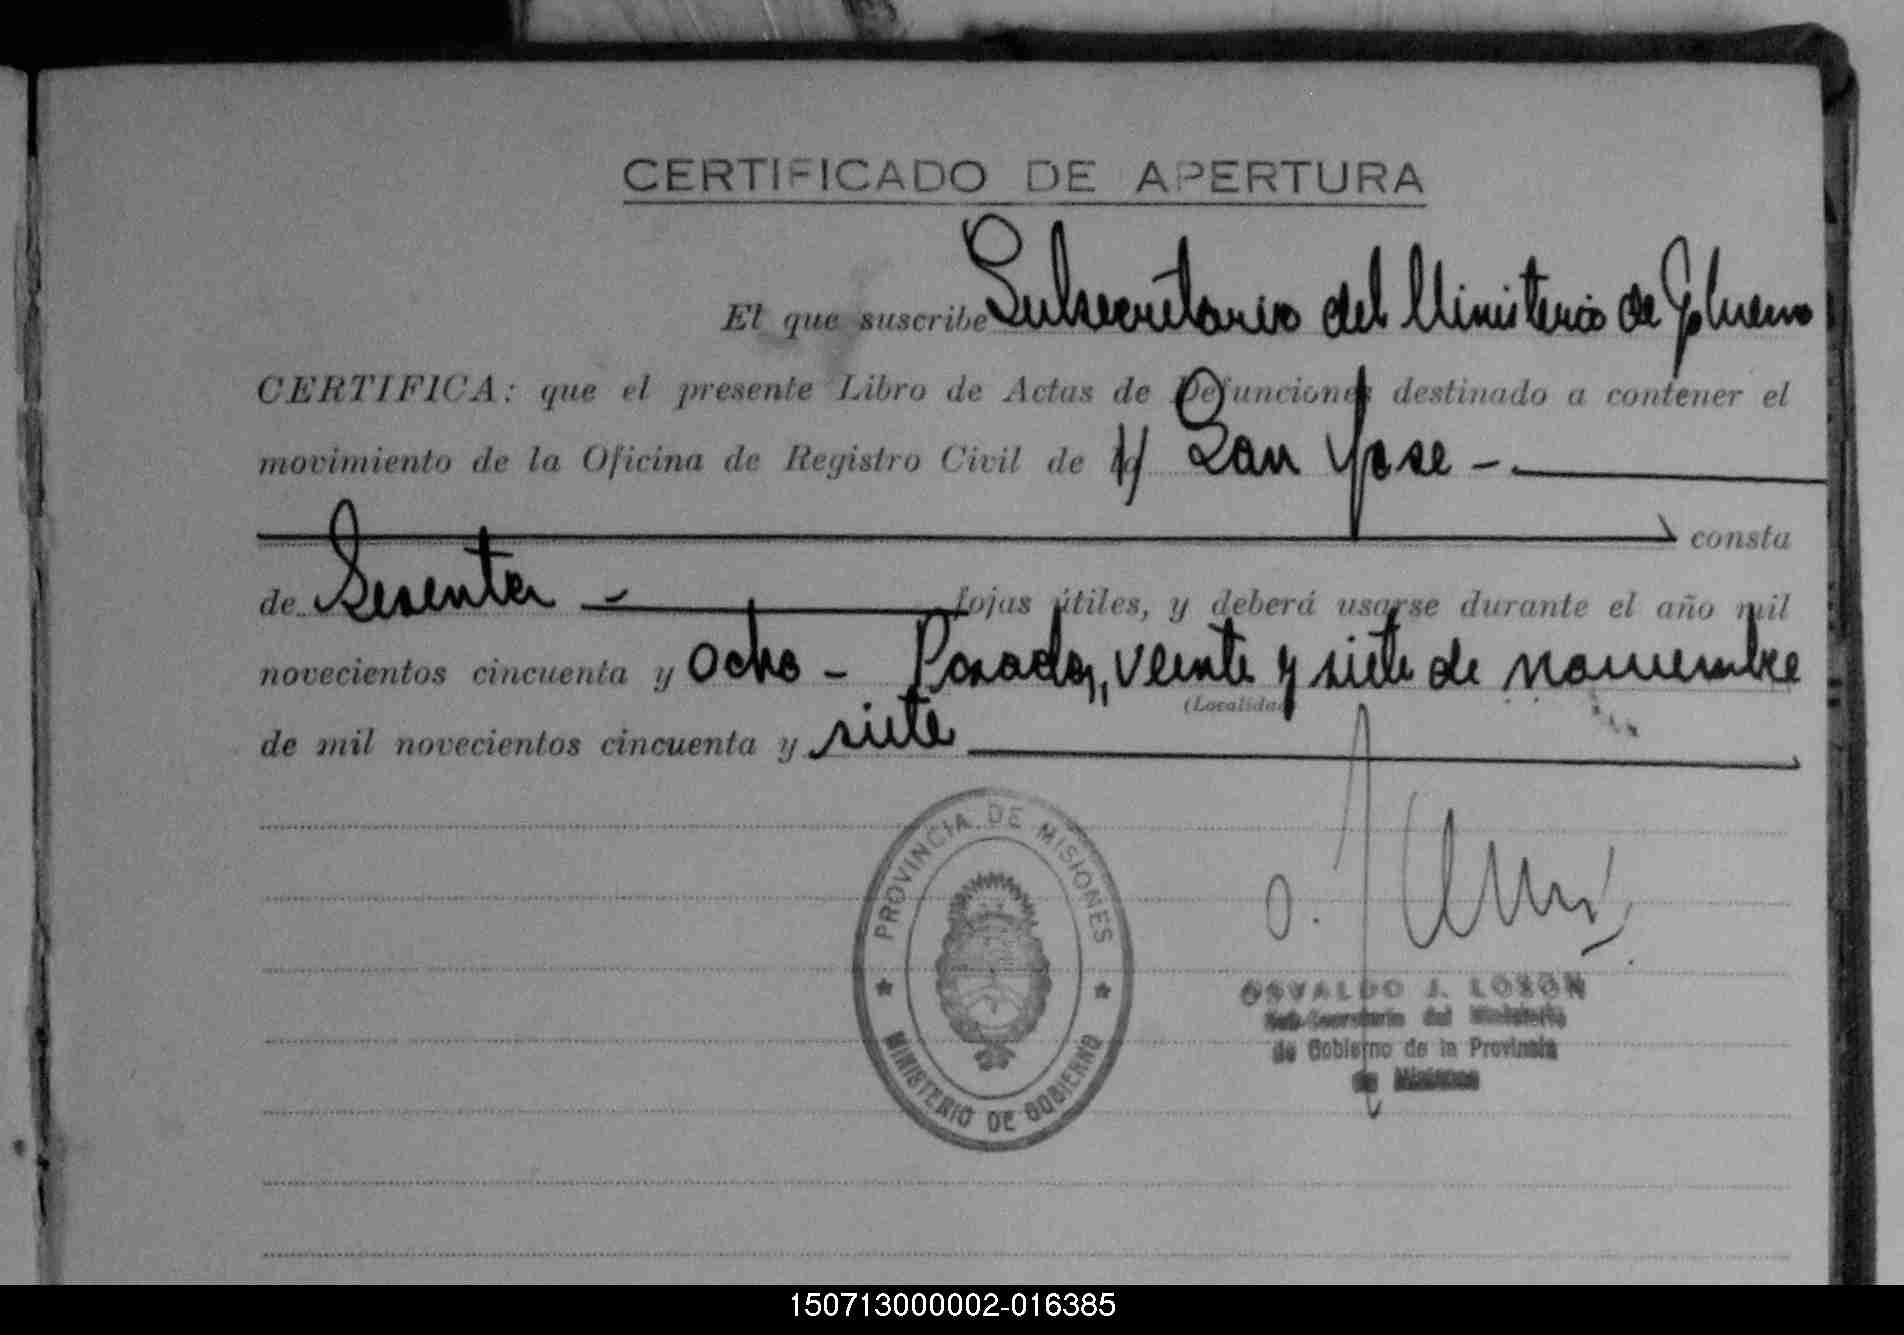 CERTIFICADO DE APERTURA
El que suscribe Subsecretario del Ministerio de Gobierno
CERTIFICA: que el presente Libro de Actas de Defunciones destinado a contener el
movimiento de la Oficina de Registro Civil de San Jose -
consta
de Sesenta - fojas útiles, y deberá usarse durante el año mil
novecientos cincuenta y ocho - Posadas, veinte y siete de noviembre
(Localidad)
de mil novecientos cincuenta y siete
PROVINCIA DE MISIONES
MINISTERIO DE GOBIERNO
OSVALDO J. LOSON
Sub-Secretario del Ministerio
de Gobierno de la Provincia
de Misiones
150713000002-016385